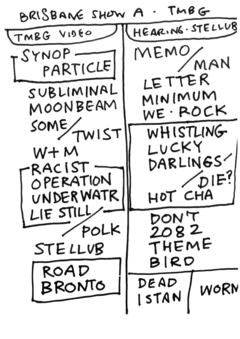 BRISBANE SHOW A · TMBG
TMBG VIDEO
SYNOP
PARTICLE
SUBLIMINAL
MOONBEAM
SOME/
TWIST
W+M
RACIST
OPERATION
UNDERWATR
LIE STILL/
POLK
STELLUB
ROAD
BRONTO
HEARING · STELLUB
MEMO/
MAN
LETTER
MINIMUM
WE · ROCK
WHISTLING
LUCKY
DARLINGS/
DIE?
HOT CHA
DON'T
2082
THEME
BIRD
DEAD
ISTAN
WORM